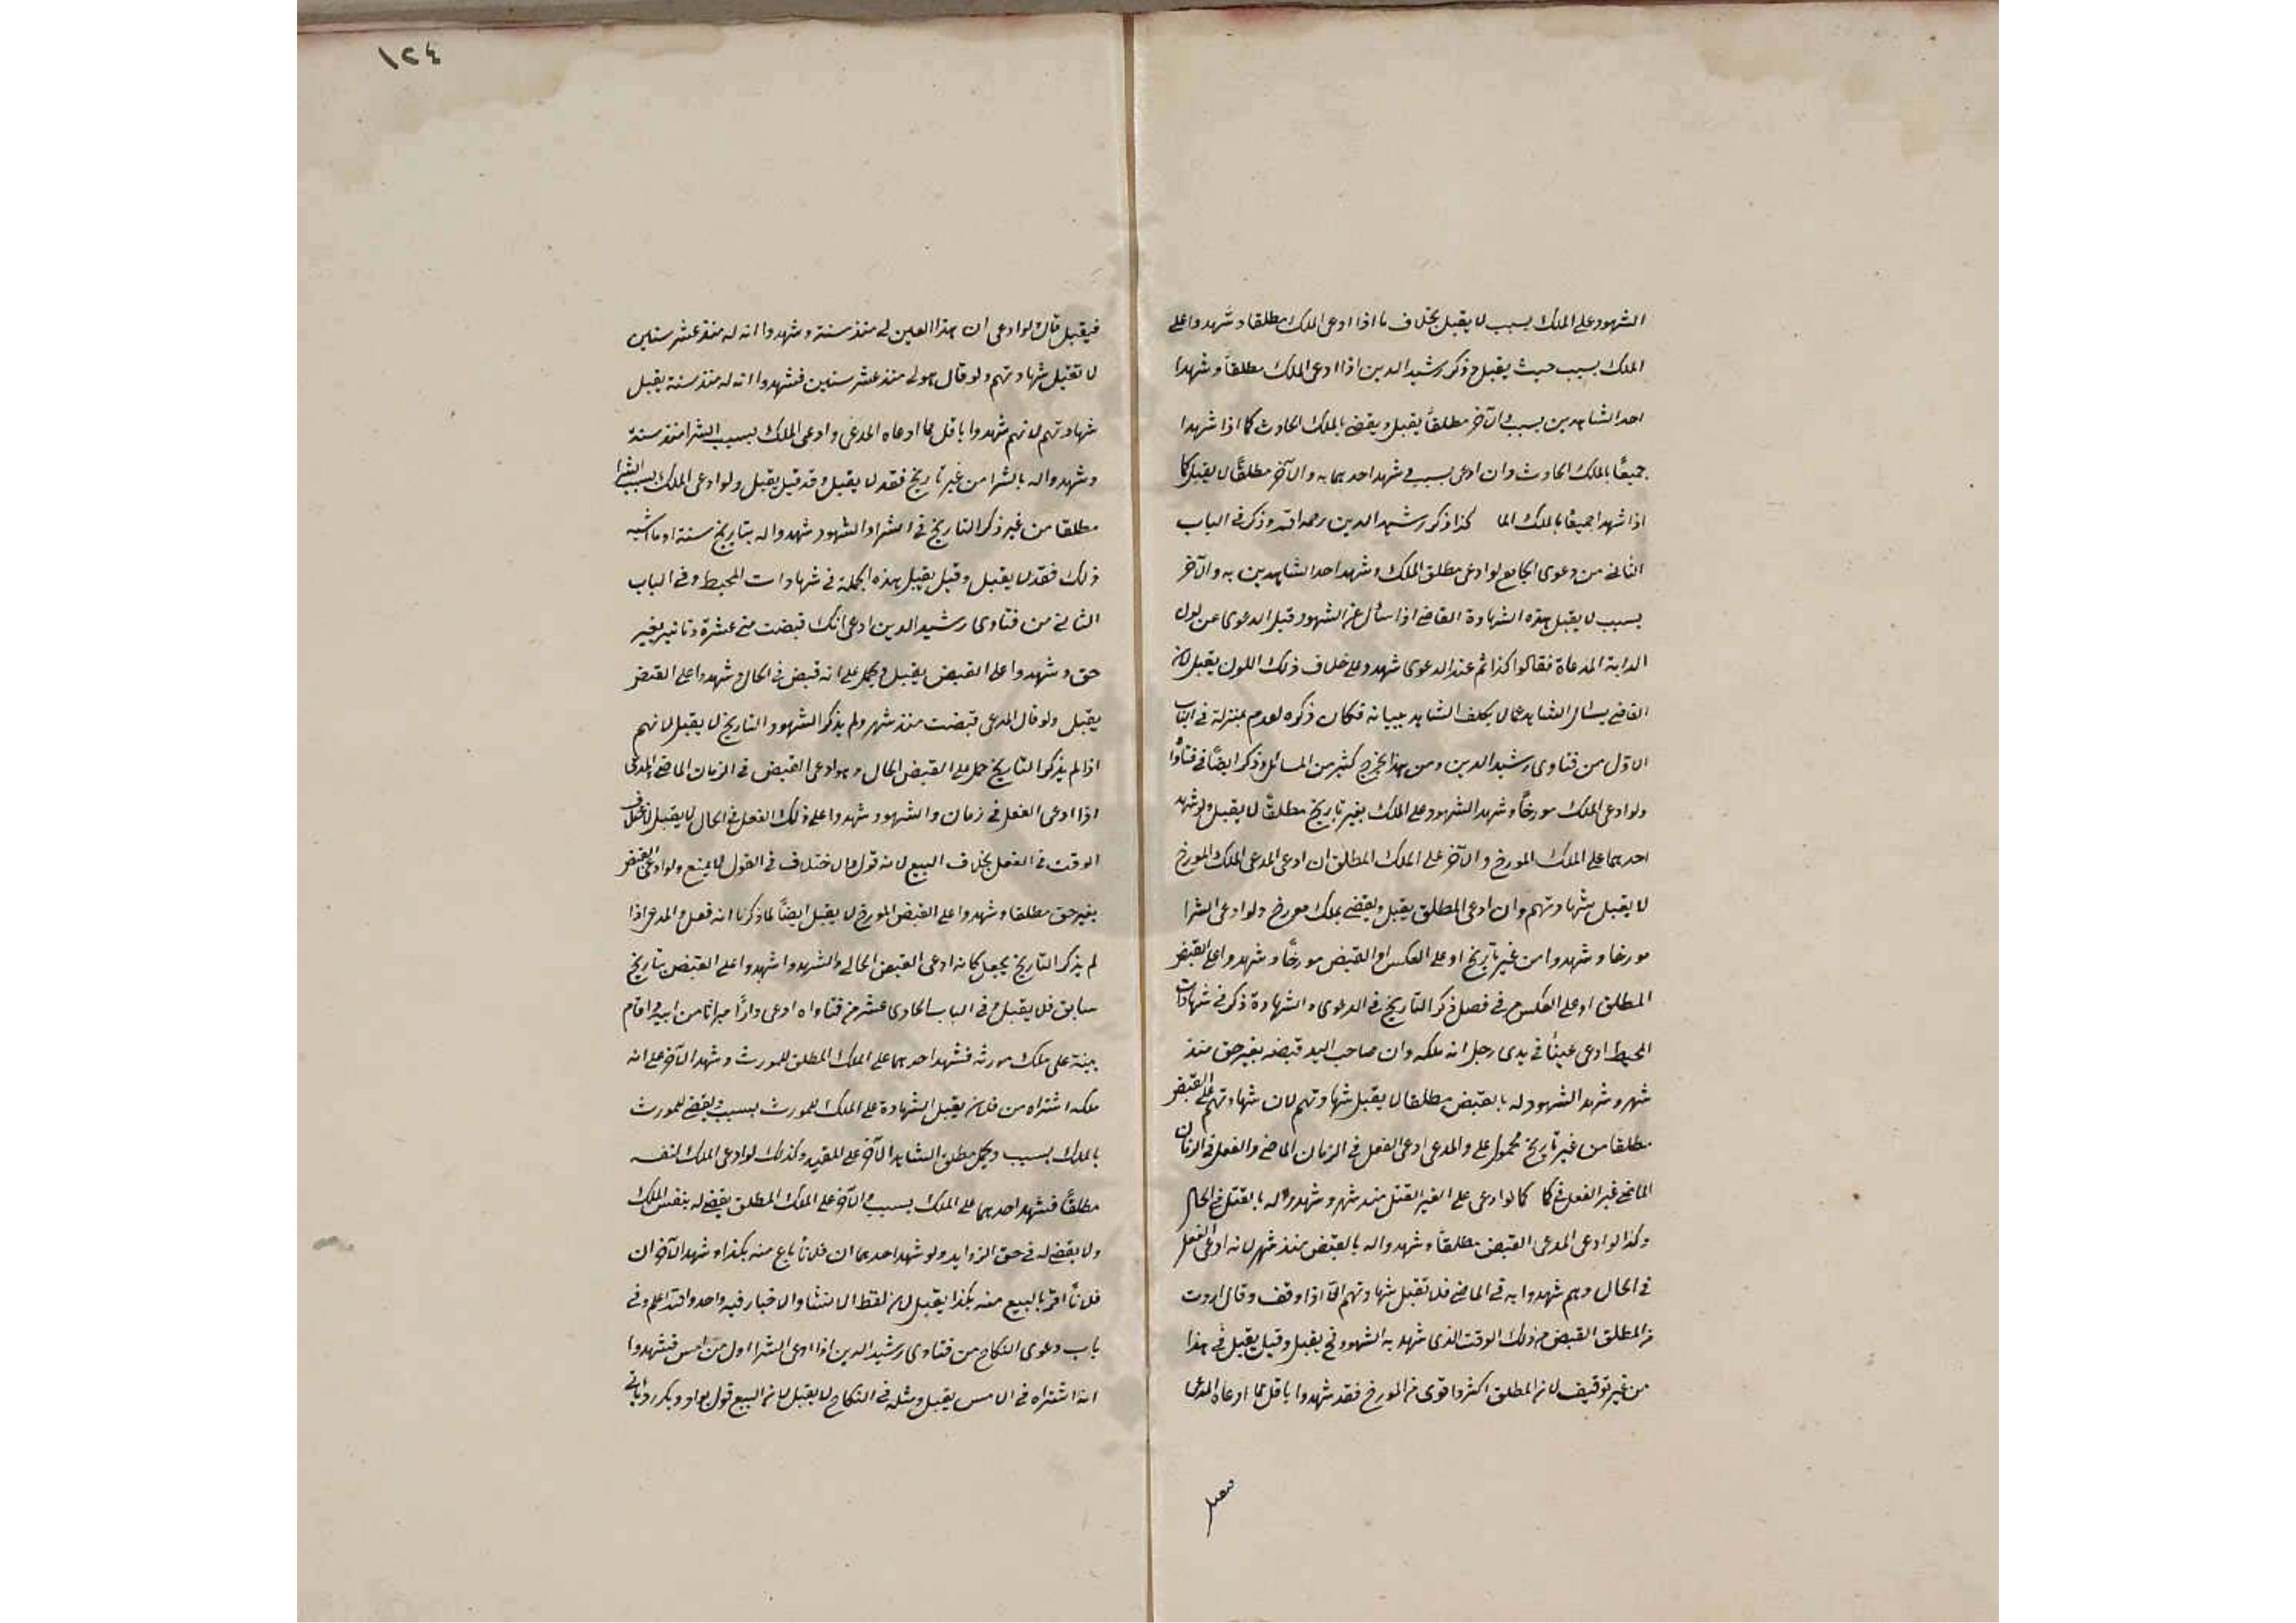 الشهود على الملك بسبب لا يقبل بخلاف ما اذا ادعى الملك مطلقا وشهدوا على
الملك بسبب حيث يقبل وذكر رشيد الدين اذا ادعى الملك مطلقاً وشهدا
احد الشاهدين بسبب والآخر مطلقاً يقبل ويقضى بالملك الحادث كما اذا شهدا
جميعًا بالملك الحادث وان ادعى بسبب فشهد احدهما به والآخر مطلقًا لا يقبل كما
اذا شهدا جميعًا بالملك الما كذا ذكر رشيد الدين رحمه الله وذكر في الباب
الثاني من دعوى الجامع لو ادعى مطلق الملك وشهد احد الشاهدين به والآخر
بسبب لا يقبل هذه الشهادة القاضي اذا سأل عن الشهود قبل الدعوى عن لون
الدابة المدعاة فقالوا كذا ثم عند الدعوى شهدوا على خلاف ذلك اللون يقبل لان
القاضي يسأل الشاهد عما لا يكلف الشاهد ببيانه فكان ذكره لعدم بمنزلة في الباب
الاول من فتاوى رشيد الدين ومن هذا يخرج كثير من المسائل وذكر ايضًا في فتاواه
ولو ادعى الملك مورخاً وشهد الشهود على الملك بغير تاريخ مطلقًا لا يقبل ولو شهد
احدهما على الملك المورخ والآخر على الملك المطلق ان ادعى المدعى الملك المورخ
لا يقبل شهادتهم وان ادعى المطلق يقبل ويقضى بملك مورخ ولو ادعى الشرا
مورخا وشهدوا من غير تاريخ او على العكس او القبض مورخًا وشهدوا على القبض
المطلق او على العكس في فصل ذكر التاريخ في الدعوى والشهادة ذكر في شهادات
المحيط ادعى عينًا في يدى رجل انه ملكه وان صاحب اليد قبضه بغير حق منذ
شهر وشهد الشهود له بالقبض مطلقا لا يقبل شهادتهم لان شهادتهم على القبض
مطلقا من غير تاريخ محمول على والمدعى ادعى الفعل في الزمان الماضي والفعل في الزمان
الماضي غير الفعل في كا كما لو ادعى على الغير القتل منذ شهر وشهدوا له بالقتل في الحال
وكذا لو ادعى المدعى القبض مطلقاً وشهدوا له بالقبض منذ شهر لانه ادعى الفعل
في الحال وهم شهدوا به في الماضي فلا تقبل شهادتهم الا اذا وقف وقال اردت
من المطلق القبض من ذلك الوقت الذى شهد به الشهود فح يقبل وقيل يقبل في هذا
من غير توقيف لان المطلق اكثر واقوى من المورخ فقد شهدوا باقل مما ادعاه المدعى
فيقبل
١٢٤
فيقبل قال لو ادعى ان هذا العين لي منذ سنة وشهدوا انه له منذ عشر سنين
لا تقبل شهادتهم ولو قال هو لي منذ عشر سنين فشهدوا انه له منذ سنة يقبل
شهادتهم لانهم شهدوا باقل مما ادعاه المدعى وادعى الملك بسبب الشرا منذ سنة
وشهدوا له بالشرا من غير تاريخ فقد لا يقبل وقد قيل يقبل ولو ادعى الملك بسبب الشرا
مطلقا من غير ذكر التاريخ في الشرا والشهود شهدوا له بتاريخ سنة او ما اشبه
ذلك فقد لا يقبل وقيل يقبل هذه الجملة في شهادات المحيط وفي الباب
الثاني من فتاوى رشيد الدين ادعى انك قبضت مني عشرة دنانير بغير
حق وشهدوا على القبض يقبل ويحمل على انه قبض في الحال وشهدوا على القبض
يقبل ولو قال المدعى قبضت منذ شهر ولم يذكر الشهود التاريخ لا يقبل لانهم
اذا لم يذكروا التاريخ حمل على القبض الحال وهو ادعى القبض في الزمان الماضي المدعى
اذا ادعى الفعل في زمان والشهود شهدوا على ذلك الفعل في الحال لا يقبل لاختلاف
الوقت في الفعل بخلاف البيع لانه قول والاختلاف في القول لا يمنع ولو ادعى القبض
بغير حق مطلقا وشهدوا على القبض المورخ لا يقبل ايضاً لما ذكرنا انه فعل والمدعى اذا
لم يذكر التاريخ يجعل كانه ادعى القبض الحالى والشهود اشهدوا على القبض بتاريخ
سابق فلا يقبل وفي الباب الحادى عشر من فتاواه ادعى دارًا ميراثا من ابيه واقام
بينة على ملك مورثه فشهد احدهما على الملك المطلق للمورث وشهد الآخر على انه
ملكه اشتراه من فلان يقبل الشهادة على الملك للمورث بسبب ويقضى للمورث
بالملك بسبب ويحمل مطلق الشاهد الآخر على المقيد وكذلك لو ادعى الملك لنفسه
مطلقًا فشهد احدهما على الملك بسبب والآخر على الملك المطلق يقضى له بنفس الملك
ولا يقضى له في حق الزوايد ولو شهد احدهما ان فلانًا باع منه بكذا وشهد الآخر ان
فلانًا اقر بالبيع منه بكذا يقبل لان لفظ الانشا والاخبار فيه واحد والله اعلم وفي
باب دعوى النكاح من فتاوى رشيد الدين اذا ادعى الشرا اول من امس فشهدوا
انه اشتراه في الامس يقبل ومثله في النكاح لا يقبل لان البيع قول يعاد ويكرر